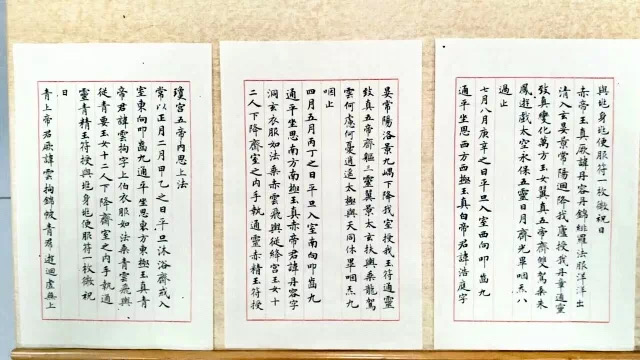 瓊宮五帝內思上法
常以正月二月甲乙之日平旦沐浴齋戒入
室東向叩齒九通平坐思東方東極玉真青
帝君諱雲拘字上伯衣服如法乘青雲飛輿
從青要玉女十二人下降齋室之內手執通
靈青精玉符授與兆身兆便服符一枚微祝
曰
青上帝君厥諱雲拘錦帔青裙遊迴虛無上
晏常陽洛景九嵎下降我室授我玉符通靈
致真五帝齊軀三靈翼景太玄扶輿乘龍駕
雲何慮何憂遨遊太極與天同休畢咽炁九
咽止
四月五月丙丁之日平旦入室南向叩齒九
通平坐思南方南極玉真赤帝君諱丹容字
洞玄衣服如法乘赤雲飛輿從絳宮玉女十
二人下降齋室之內手執通靈赤精玉符授
與兆身兆便服符一枚微祝曰
赤帝玉真厥諱丹容丹錦緋羅法服洋洋出
清入玄晏景常陽迴降我廬授我丹章通靈
致真變化萬方玉女翼真五帝齊雙駕乘朱
鳳遊戲太空永保五靈日月齊光畢咽炁八
過止
七月八月庚辛之日平旦入室西向叩齒九
通平坐思西方西極玉真白帝君諱浩庭字